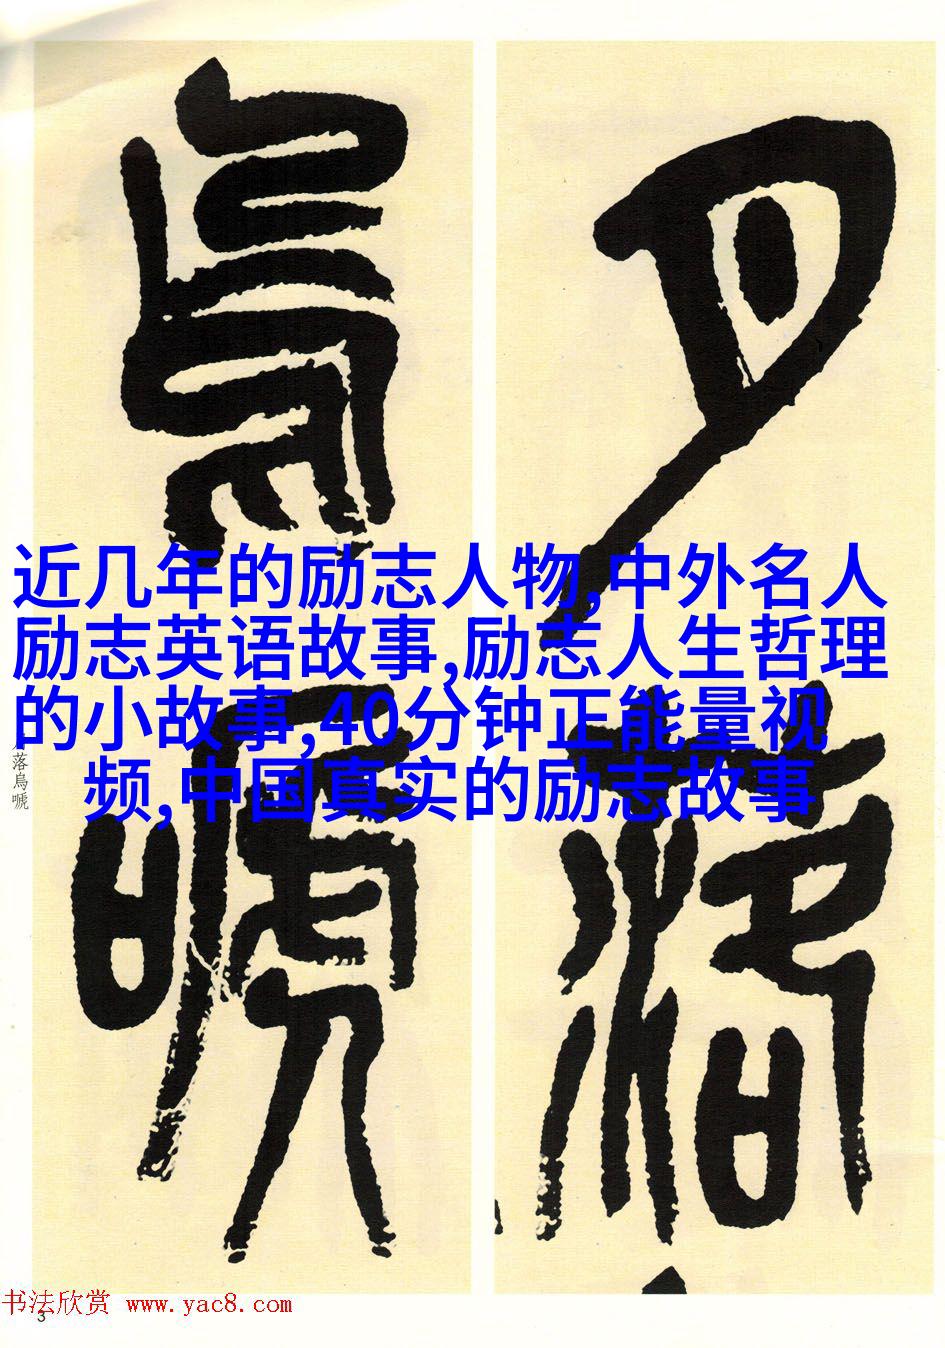 月落
烏嗁
近几年的励志人物,中外名人
励志英语故事,励志人生哲理
的小故事,40分钟正能量视
频,中国真实的励志故事
落烏嗁
书法欣赏 www.yac8.com
3